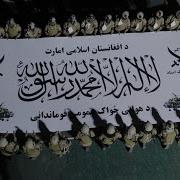 د افغانستان اسلامي امارت
لا إله إلا الله محمد رسول الله
د هوايي ځواک عمومي قوماندانی